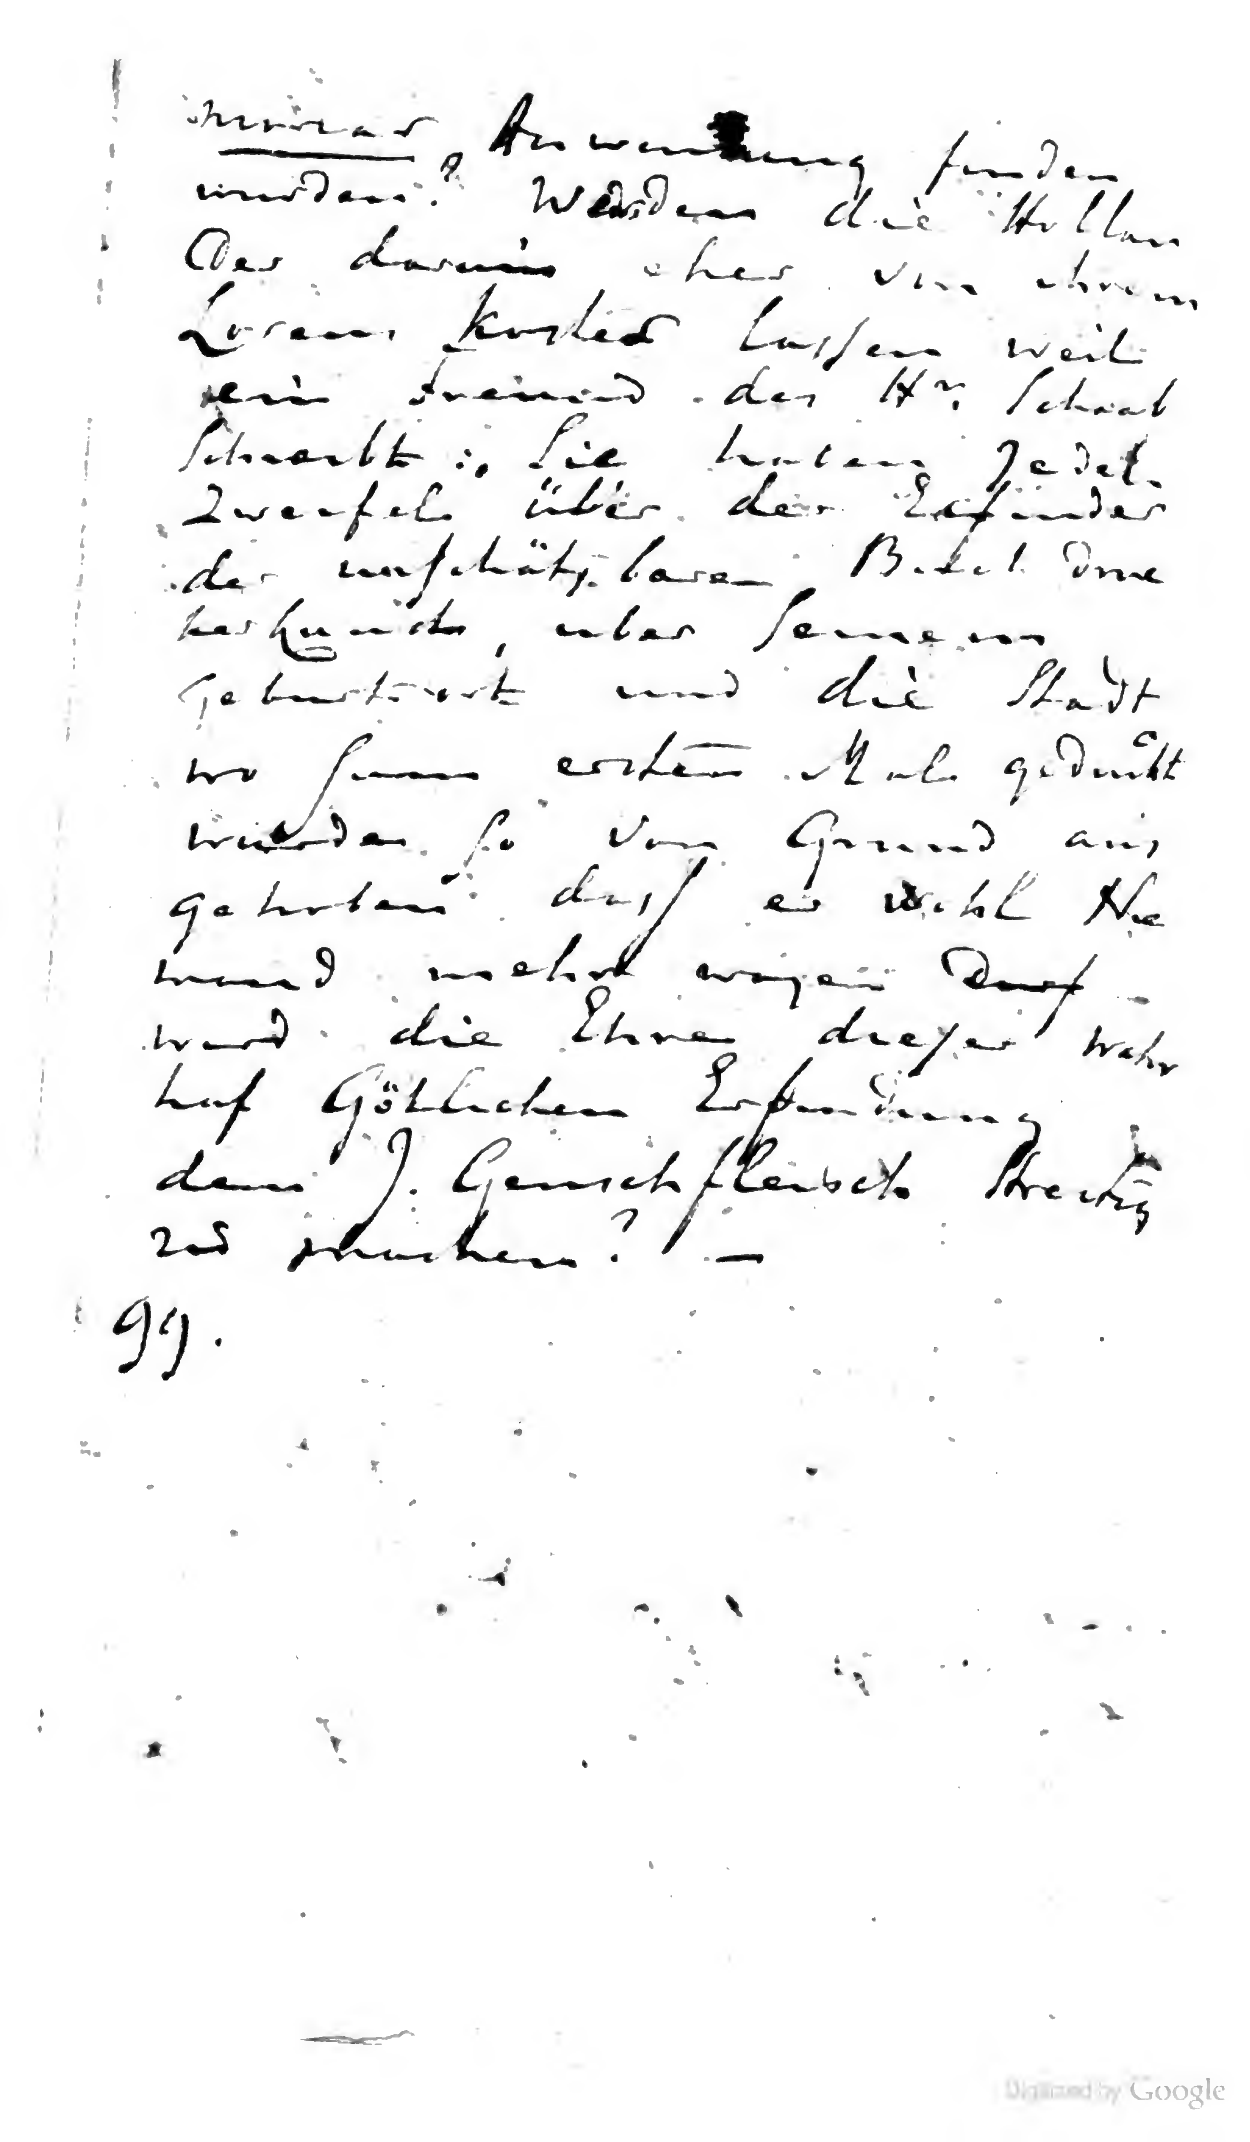 Anwendung finden
wurden? Werden die Hollan
Der darum eher von ihrem
Lorenz Koster lassen weil
ein Freund des Hr. Schaab
Schreibt: Sie haben Jedel
Zweifel über der Erfinder
der unschätzbaren Buch Druc
kerkunst, uber Seinem
Geburtsort und die Stadt
wo zum ersten Mal gedruckt
wurden so von Grund aus
gehoben dass es wohl Nie
mand mehr wagen Darf
und die Ehre dieser wahr
haf Götlichen Erfindung
dem J. Gensehfleisch Streitig
zu machen? —
99.
Digitized by Google